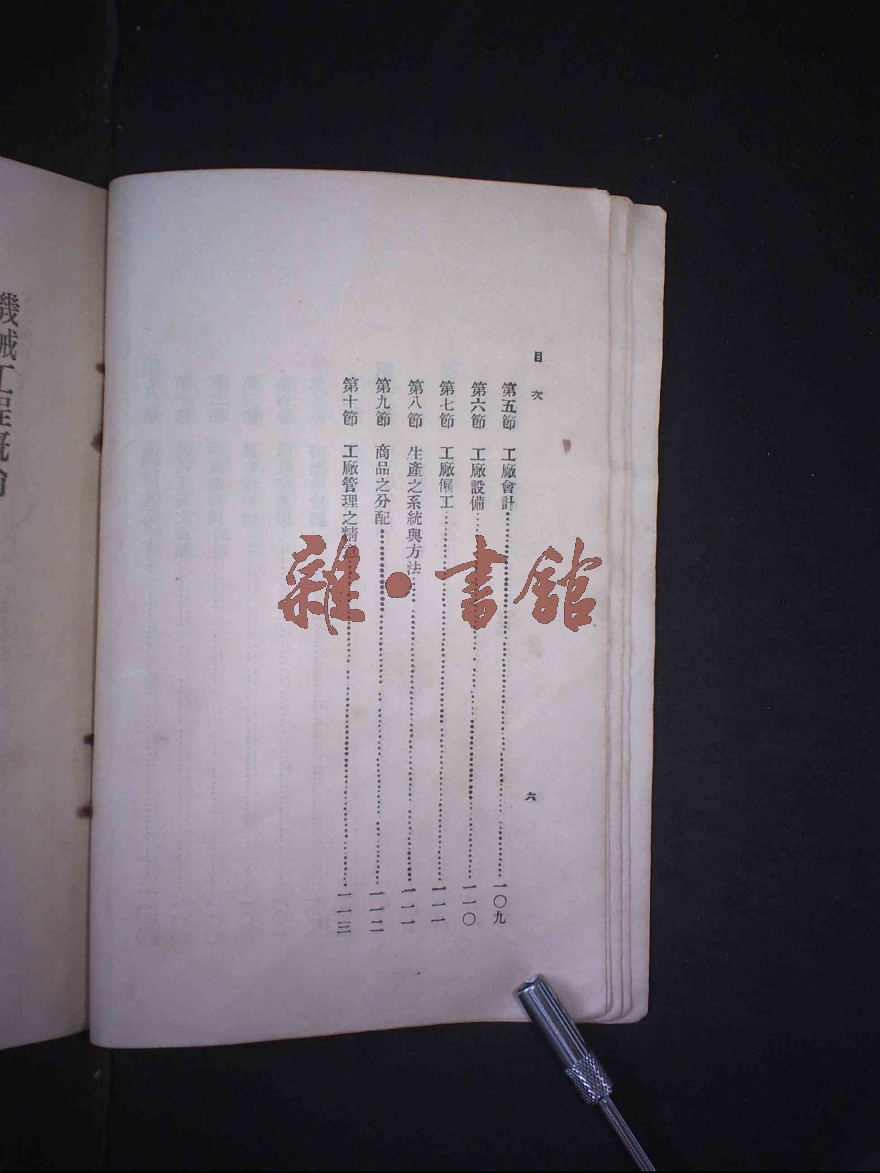 目次
第五節 工廠會計 一〇九
第六節 工廠設備 一一〇
第七節 工廠僱工 一一一
第八節 生產之系統與方法 一一一
第九節 商品之分配 一一二
第十節 工廠管理之精 一一三
六
機械工程概論
雜•書館